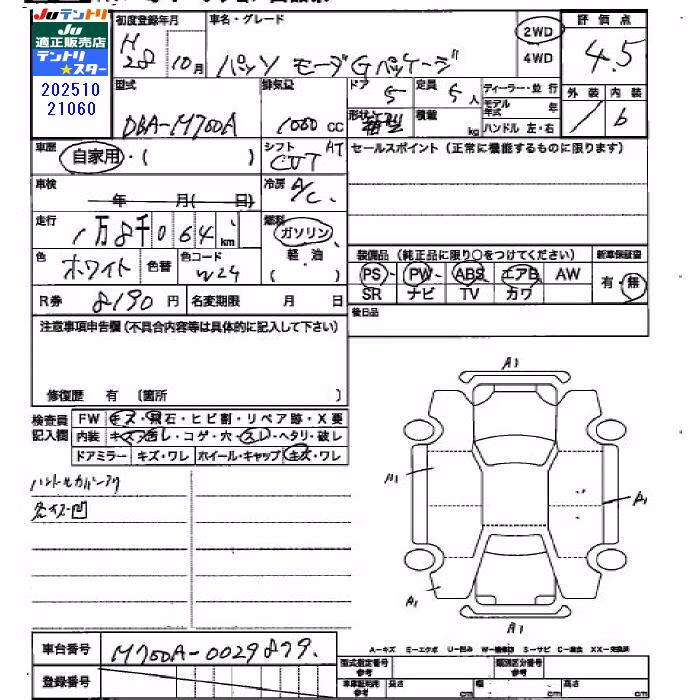 Juテントリ
Ju
適正販売店
テントリ
★スター
202510
21060
初度登録年月
H
28 10月
車名・グレード
パッソ モーダGパッケージ
2WD
4WD
評価点
4.5
外装 内装
/ b
型式
DBA-M700A
排気量
1000 cc
ドア
5
定員
5人
ディーラー・並行
モデル年式 年
ハンドル 左・右
形状
箱型
積載
kg
車歴
自家用・( )
シフト AT
CVT
セールスポイント (正常に機能するものに限ります)
車検
年 月( 日)
冷房
A/C
走行
1万8千064km
燃料
ガソリン
軽・油
( )
色
ホワイト
色替
色コード
W24
装備品 (純正品に限り○をつけてください)
新車保証書
PS PW ABS エアB AW
SR ナビ TV カワ
有・無
R券 8190円
名変期限 月 日
後日品
注意事項申告欄(不具合内容等は具体的に記入して下さい)
修復歴 有 〔箇所 〕
検査員
記入欄
FW キズ・飛石・ヒビ割・リペア跡・X要
内装 キズ・汚レ・コゲ・穴・スレ・ヘタリ・破レ
ドアミラー キズ・ワレ ホイール・キャップ キズ・ワレ
A1
A1
A1
A1
車台番号 M700A-0029879.
登録番号
A-キズ E-エクボ U-凹み W-補修跡 S-サビ C-腐食 XX-交換済
型式指定番号
参考
類別区分番号
参考
車庫証明用
参考
長さ cm 幅 cm 高さ cm